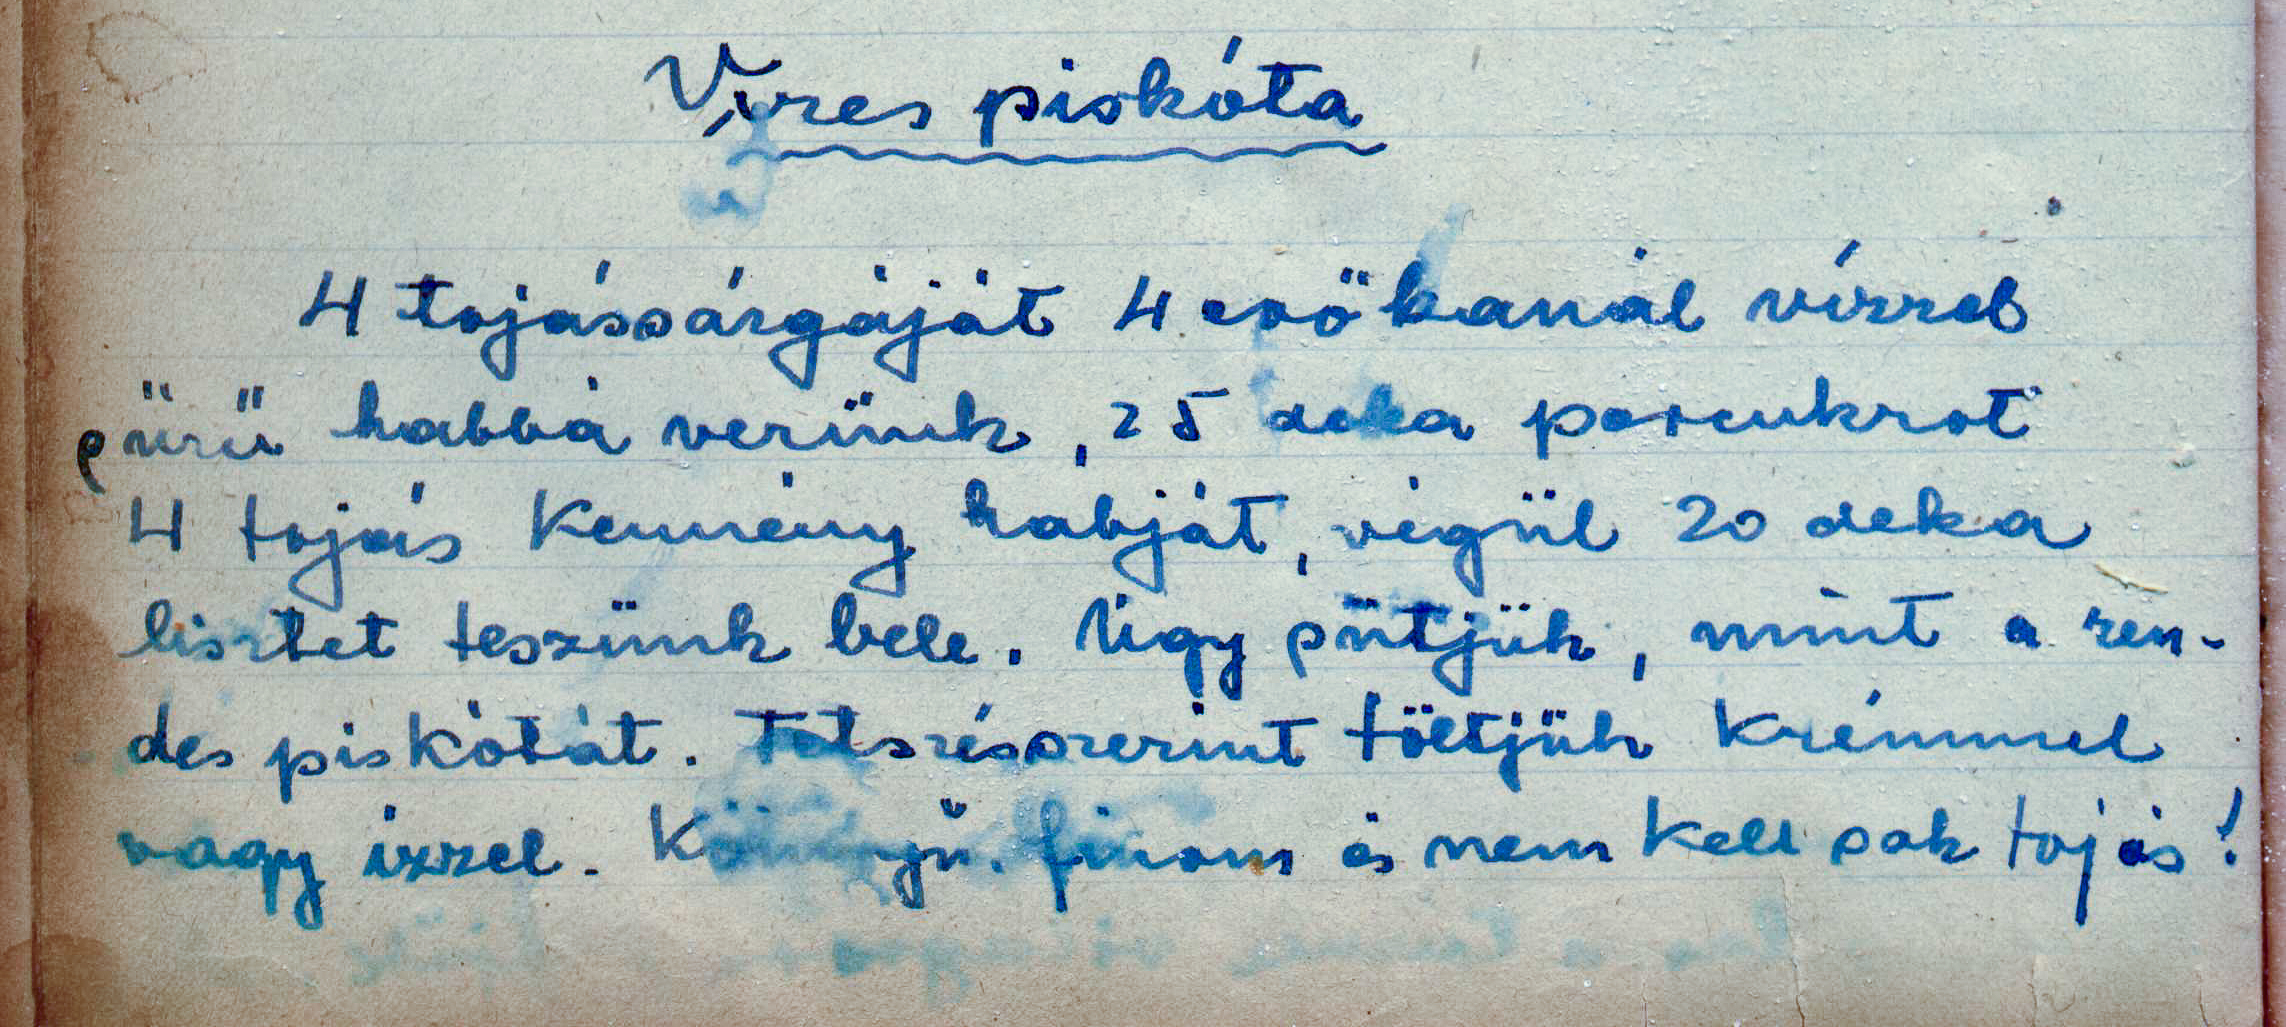 Vizes piskóta
4 tojássárgáját 4 evőkanál vízzel
sűrű habbá verünk, 25 deka porcukrot
4 tojás kemény habját, végül 20 deka
lisztet teszünk bele. Úgy sütjük, mint a ren-
des piskótát. Tetszésszerint töltjük krémmel
vagy ízzel. Könnyű, finom és nem kell sok tojás!